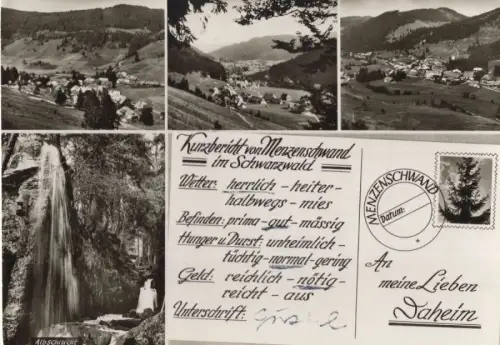 Kurzbericht von Menzenschwand
im Schwarzwald
Wetter: herrlich - heiter-
halbwegs - mies
Befinden: prima - gut - mässig
Hunger u. Durst: unheimlich-
tüchtig - normal - gering
Geld: reichlich - nötig-
reicht - aus
Unterschrift:
MENZENSCHWAND
Datum:
An
meine Lieben
Daheim
Albschlucht